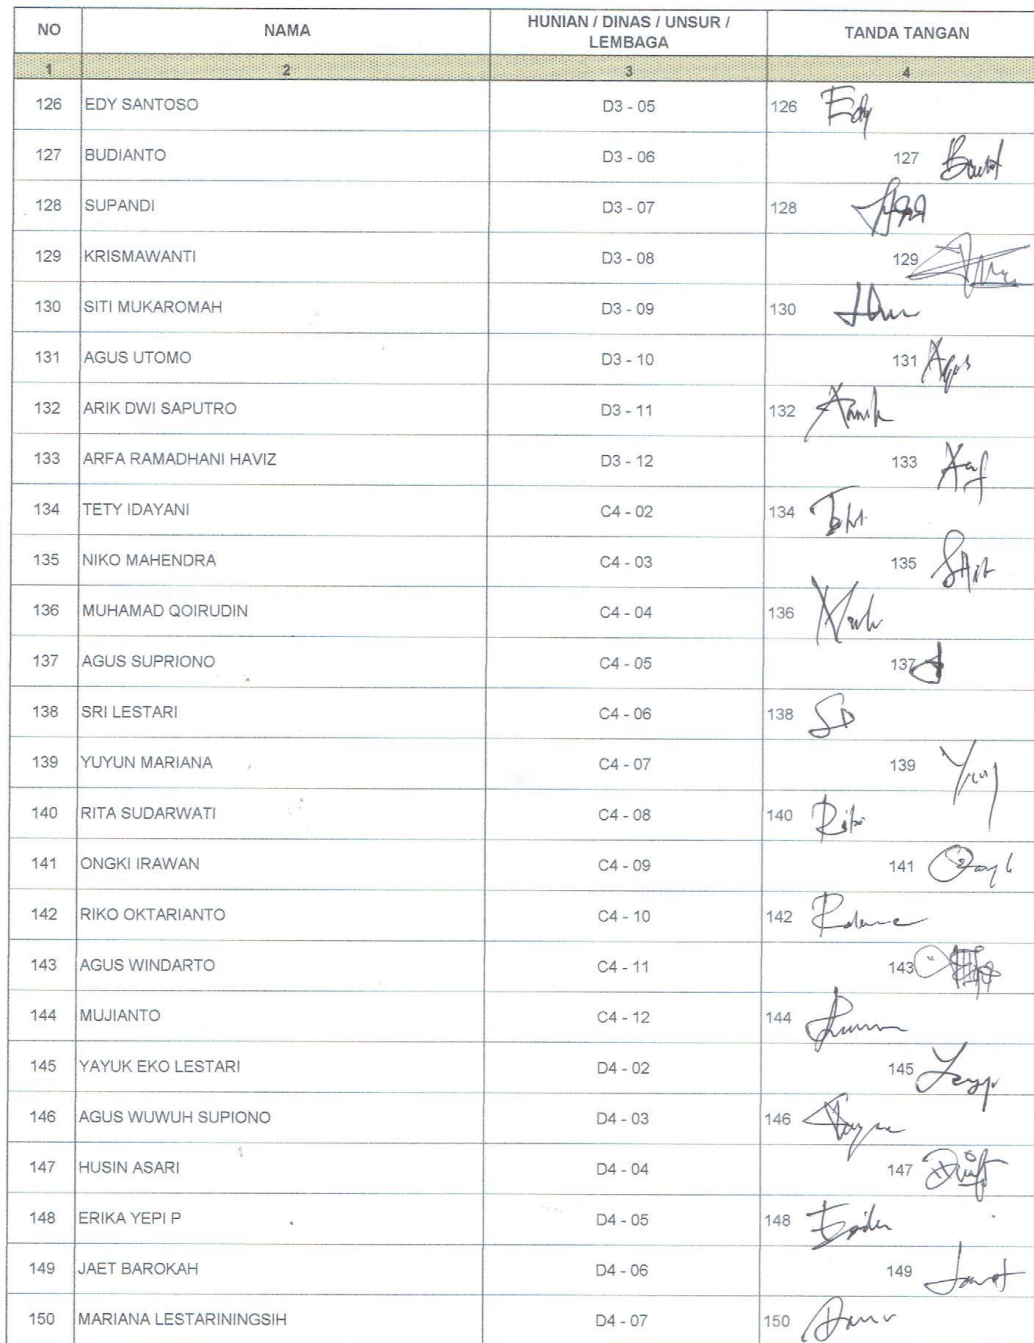 NO NAMA HUNIAN / DINAS / UNSUR / LEMBAGA TANDA TANGAN
1 2 3 4
126 EDY SANTOSO D3 - 05 126 Edy
127 BUDIANTO D3 - 06 127
128 SUPANDI D3 - 07 128
129 KRISMAWANTI D3 - 08 129
130 SITI MUKAROMAH D3 - 09 130
131 AGUS UTOMO D3 - 10 131 Agus
132 ARIK DWI SAPUTRO D3 - 11 132
133 ARFA RAMADHANI HAVIZ D3 - 12 133
134 TETY IDAYANI C4 - 02 134
135 NIKO MAHENDRA C4 - 03 135
136 MUHAMAD QOIRUDIN C4 - 04 136
137 AGUS SUPRIONO C4 - 05 137
138 SRI LESTARI C4 - 06 138
139 YUYUN MARIANA C4 - 07 139
140 RITA SUDARWATI C4 - 08 140
141 ONGKI IRAWAN C4 - 09 141
142 RIKO OKTARIANTO C4 - 10 142
143 AGUS WINDARTO C4 - 11 143
144 MUJIANTO C4 - 12 144
145 YAYUK EKO LESTARI D4 - 02 145
146 AGUS WUWUH SUPIONO D4 - 03 146
147 HUSIN ASARI D4 - 04 147
148 ERIKA YEPI P D4 - 05 148
149 JAET BAROKAH D4 - 06 149
150 MARIANA LESTARININGSIH D4 - 07 150